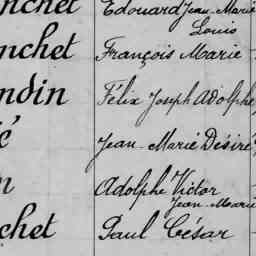 nchet Edouard Jean-Marie
Louis
nchet François Marie
ndin Félix Joseph Adolphe
é Jean-Marie Désiré
n Adolphe Victor
Jean-Marie
chet Paul César